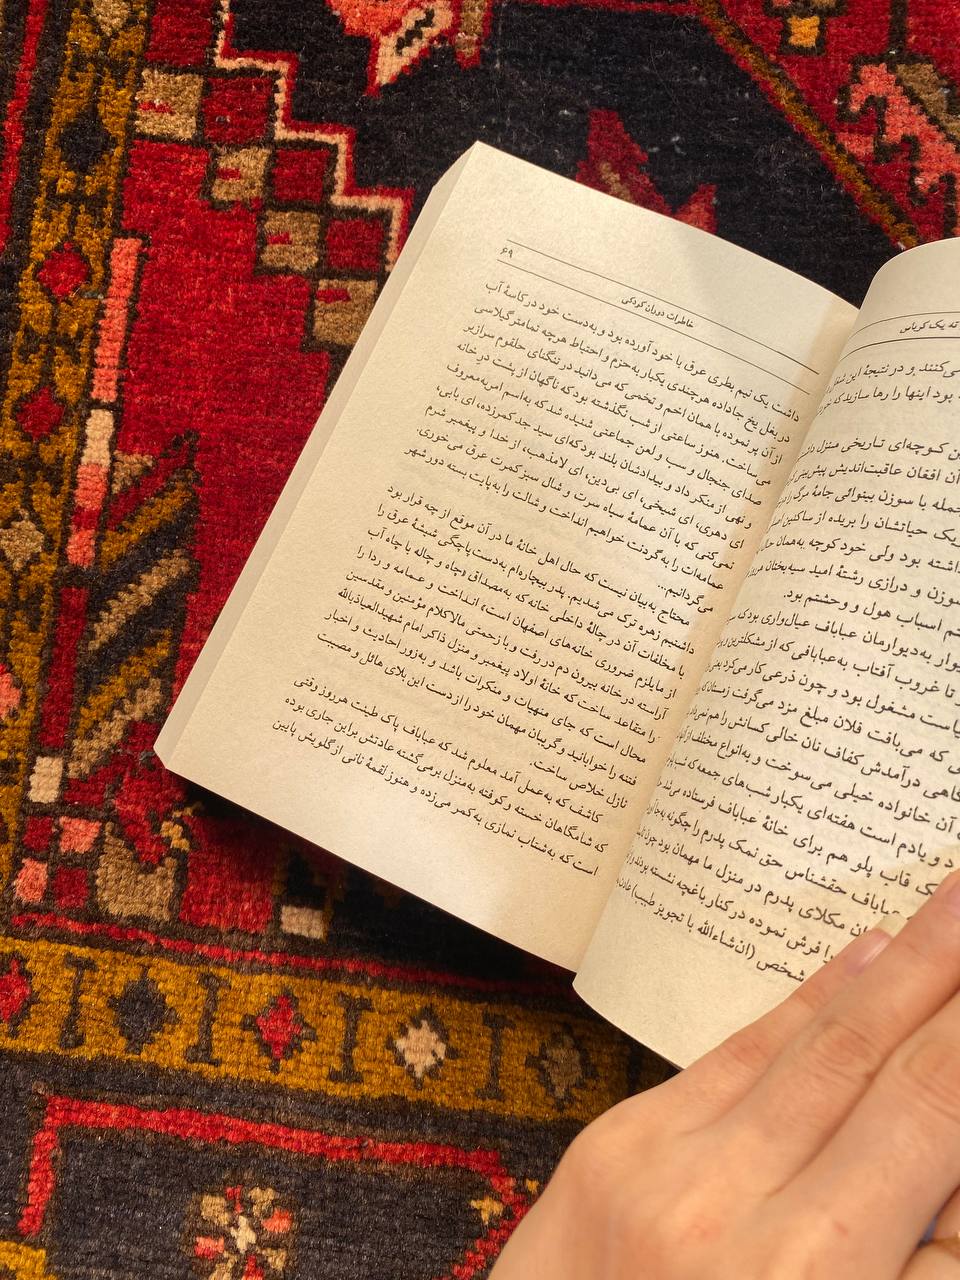 ته یک کرباس
می‌کنند و در نتیجهٔ این
بود اینها را رها سازید که
کوچه‌ای تاریخی منزل
آن افغان عاقبت‌اندیش پیش‌بینی
جمله با سوزن بینوائی جامهٔ مرگ را
حیاتشان را بریده از ساکنین
داشته بود ولی خود کوچه به‌همان
و درازی رشتهٔ امید سیه‌بختان
اسباب هول و وحشتم بود.
به‌دیوارمان عباباف عیال‌واری بود که
تا غروب آفتاب به‌عبابافی که از مشکلترین
مشغول بود و چون ذرعی کار می‌کرد یعنی
که می‌بافت فلان مبلغ مزد می‌گرفت زمستان
گاهی درآمدش کفاف نان خالی کسانش را هم
آن خانواده خیلی می‌سوخت و به‌انواع مختلف
و یادم است هفته‌ای یکبار شب‌های جمعه که
قاب پلو هم برای خانهٔ عباباف فرستاده می‌شد
عباباف حقشناس حق نمک پدرم را چگونه
مکلای پدرم در منزل ما مهمان بود چون
را فرش نموده در کنار باغچه نشسته بودند
شخص (ان‌شاءالله با تجویز طبیب)
خاطرات دوران کودکی ۶۹
داشت یک نیم بطری عرق با خود آورده بود و به‌دست خود در کاسهٔ آب
در بغل یخ جاداده هرچندی یکبار به‌حزم و احتیاط هرچه تمامتر گیلاسی
از آن پر نموده با همان اخم و تخمی که می‌دانید در تنگنای حلقوم سرازیر
می‌ساخت. هنوز ساعتی از شب نگذشته بود که ناگهان از پشت در خانه
صدای جنجال و سب و لعن جماعتی شنیده شد که به‌اسم امر به‌معروف
و نهی از منکر داد و بیدادشان بلند بود که‌ای سید جد کمرزده، ای بابی،
ای دهری، ای شیخی، ای بی‌دین، ای لامذهب، از خدا و پیغمبر شرم
نمی‌کنی که با آن عمامهٔ سیاه سرت و شال سبز کمرت عرق می خوری.
عمامه‌ات را به‌گردنت خواهیم انداخت و شالت را به‌پایت بسته دور شهر
می‌گردانیم...
محتاج به‌بیان نیست که حال اهل خانهٔ ما در آن موقع از چه قرار بود
داشتیم زهره ترک می‌شدیم. پدر بیچاره‌ام به‌دست پاچگی شیشهٔ عرق را
با مخلفات آن در چالهٔ داخلی خانه که به‌مصداق «چاه و چاله با چاه آب
از مایلزم ضروری خانه‌های اصفهان است» انداخت و عمامه و ردا را
آراسته در خانه بیرون دم در رفت و با زحمتی مالاکلام مؤمنین و مقدسین
را متقاعد ساخت که خانهٔ اولاد پیغمبر و منزل ذاکر امام شهید العیاذبالله
محال است که جای منهیات و منکرات باشد و به‌زور احادیث و اخبار
فتنه را خوابانید و گریبان مهمان خود را از دست این بلای هائل و مصیبت
نازل خلاص ساخت.
کاشف که به‌عمل آمد معلوم شد که عباباف پاک طینت هر روز وقتی
که شامگاهان خسته و کوفته به‌منزل برمی‌گشته عادتش براین جاری بوده
است که به‌شتاب نمازی به‌کمر می‌زده و هنوز لقمهٔ نانی از گلویش پایین